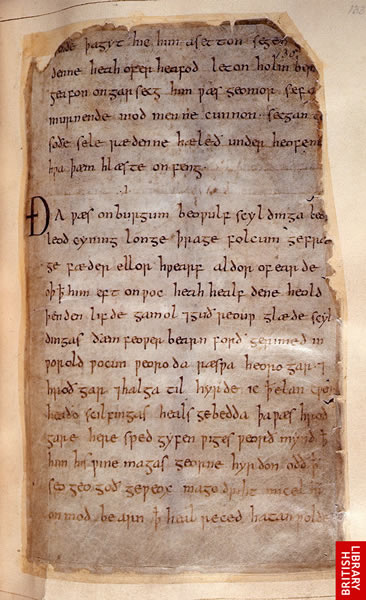 þagyt hie him asetton segen
denne heah ofer heafod leton holm ber
geafon ongarsecg him ƿæs geomor sefa
murnende mod men ne cunnon secgan to
soðe sele rædenne hæleð under heofenu
hƿa þæm hlæste onfeng.
ÐA ƿæs onburgum beoƿulf scyldinga
leod cyning longe þrage folcum gefræ
ge fæder ellor hƿearf aldor of earde
oþ ꝥ him eft onƿoc heah healf dene heold
þenden lifde gamol ⁊ guð reouƿ glæde scyl
dingas ðæm feoƿer bearn forð gerimed in
ƿorold ƿocun ƿeoroda ræsƿa heoro gar ⁊
hroð gar ⁊ halga til hyrde ic ꝥ elan cƿen
heaðo scilfingas heals gebedda þa ƿæs hroð
gare here sped gyfen ƿiges ƿeorð mynd ꝥ
him his ƿine magas georne hyrdon oðð ꝥ
seo geogoð geƿeox mago driht micel
on mod bearn ꝥ heal reced hatan ƿolde
BRITISH
LIBRARY